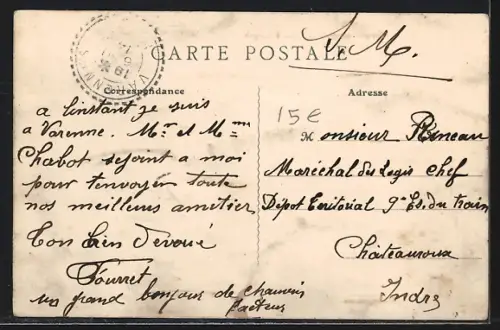 S. M.
CARTE POSTALE
Correspondance
Adresse
VARENNES
15€
a l'instant je suis
a Varenne. Mr et Mme
Chabot se joint a moi
pour t'envoyer toute
nos meilleurs amitier
Ton bien dévoué
Fourret
un grand bonjour de
facteur
Monsieur Pineau
Maréchal des logis chef
Dépôt Territorial 9e Es. du train
Châteauroux
Indre